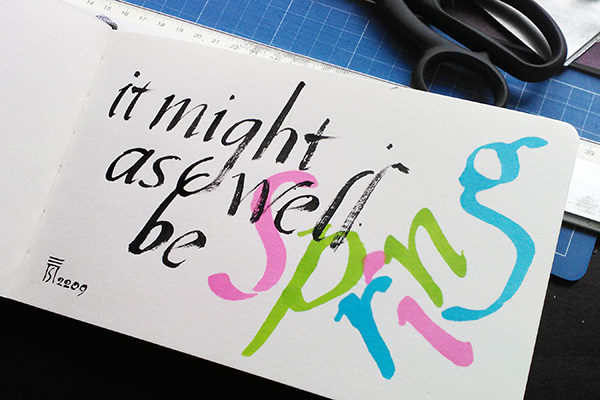 it might
as well
be Spring
2209